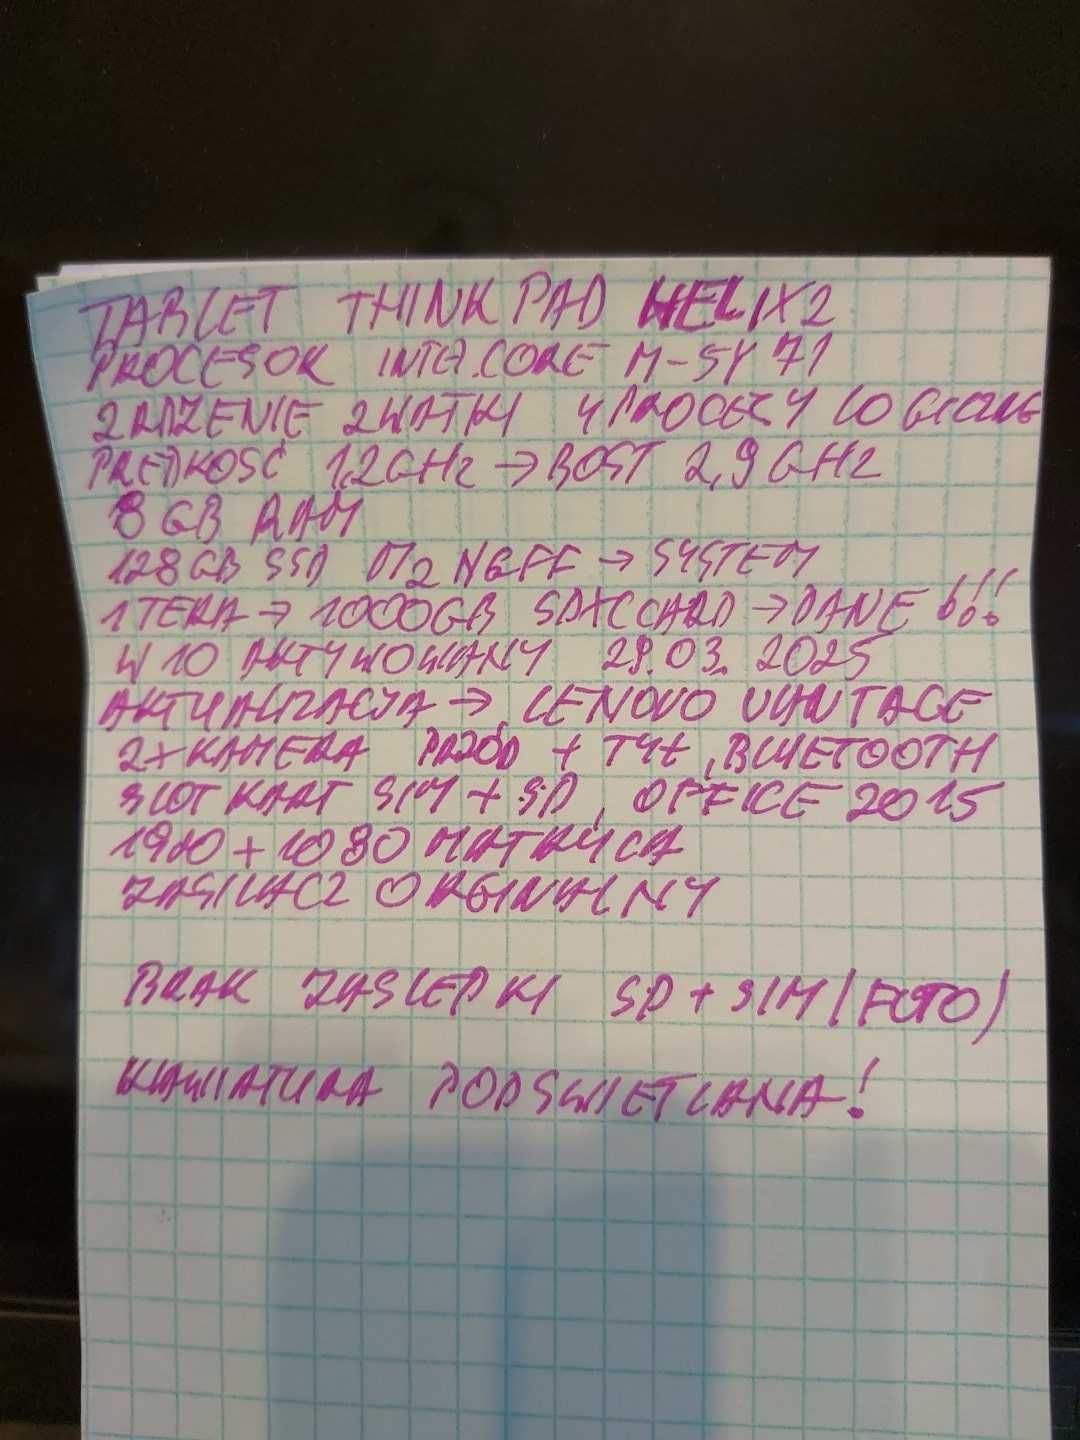 TABLET THINKPAD HELIX2
PROCESOR INTEL CORE M-5Y71
2 RDZENIE 2 WĄTKI 4 PROCESY LOGICZNE
PREDKOSĆ 1,2GHz → BOST 2,9GHz
8 GB RAM
128GB SSD M2 NGFF → SYSTEM
1 TERA → 1000GB SDXC CARD → DANE !!!
W10 AKTYWOWANY 29.03.2025
AKTUALIZACJA → LENOVO VANTAGE
2x KAMERA PRZÓD + TYŁ, BLUETOOTH
SLOT KART SIM + SD, OFFICE 2015
1920+1080 MATRYCA
ZASILACZ ORGINALNY
BRAK ZASLEPKI SD + SIM (FOTO)
KLAWIATURA PODSWIETLANA!